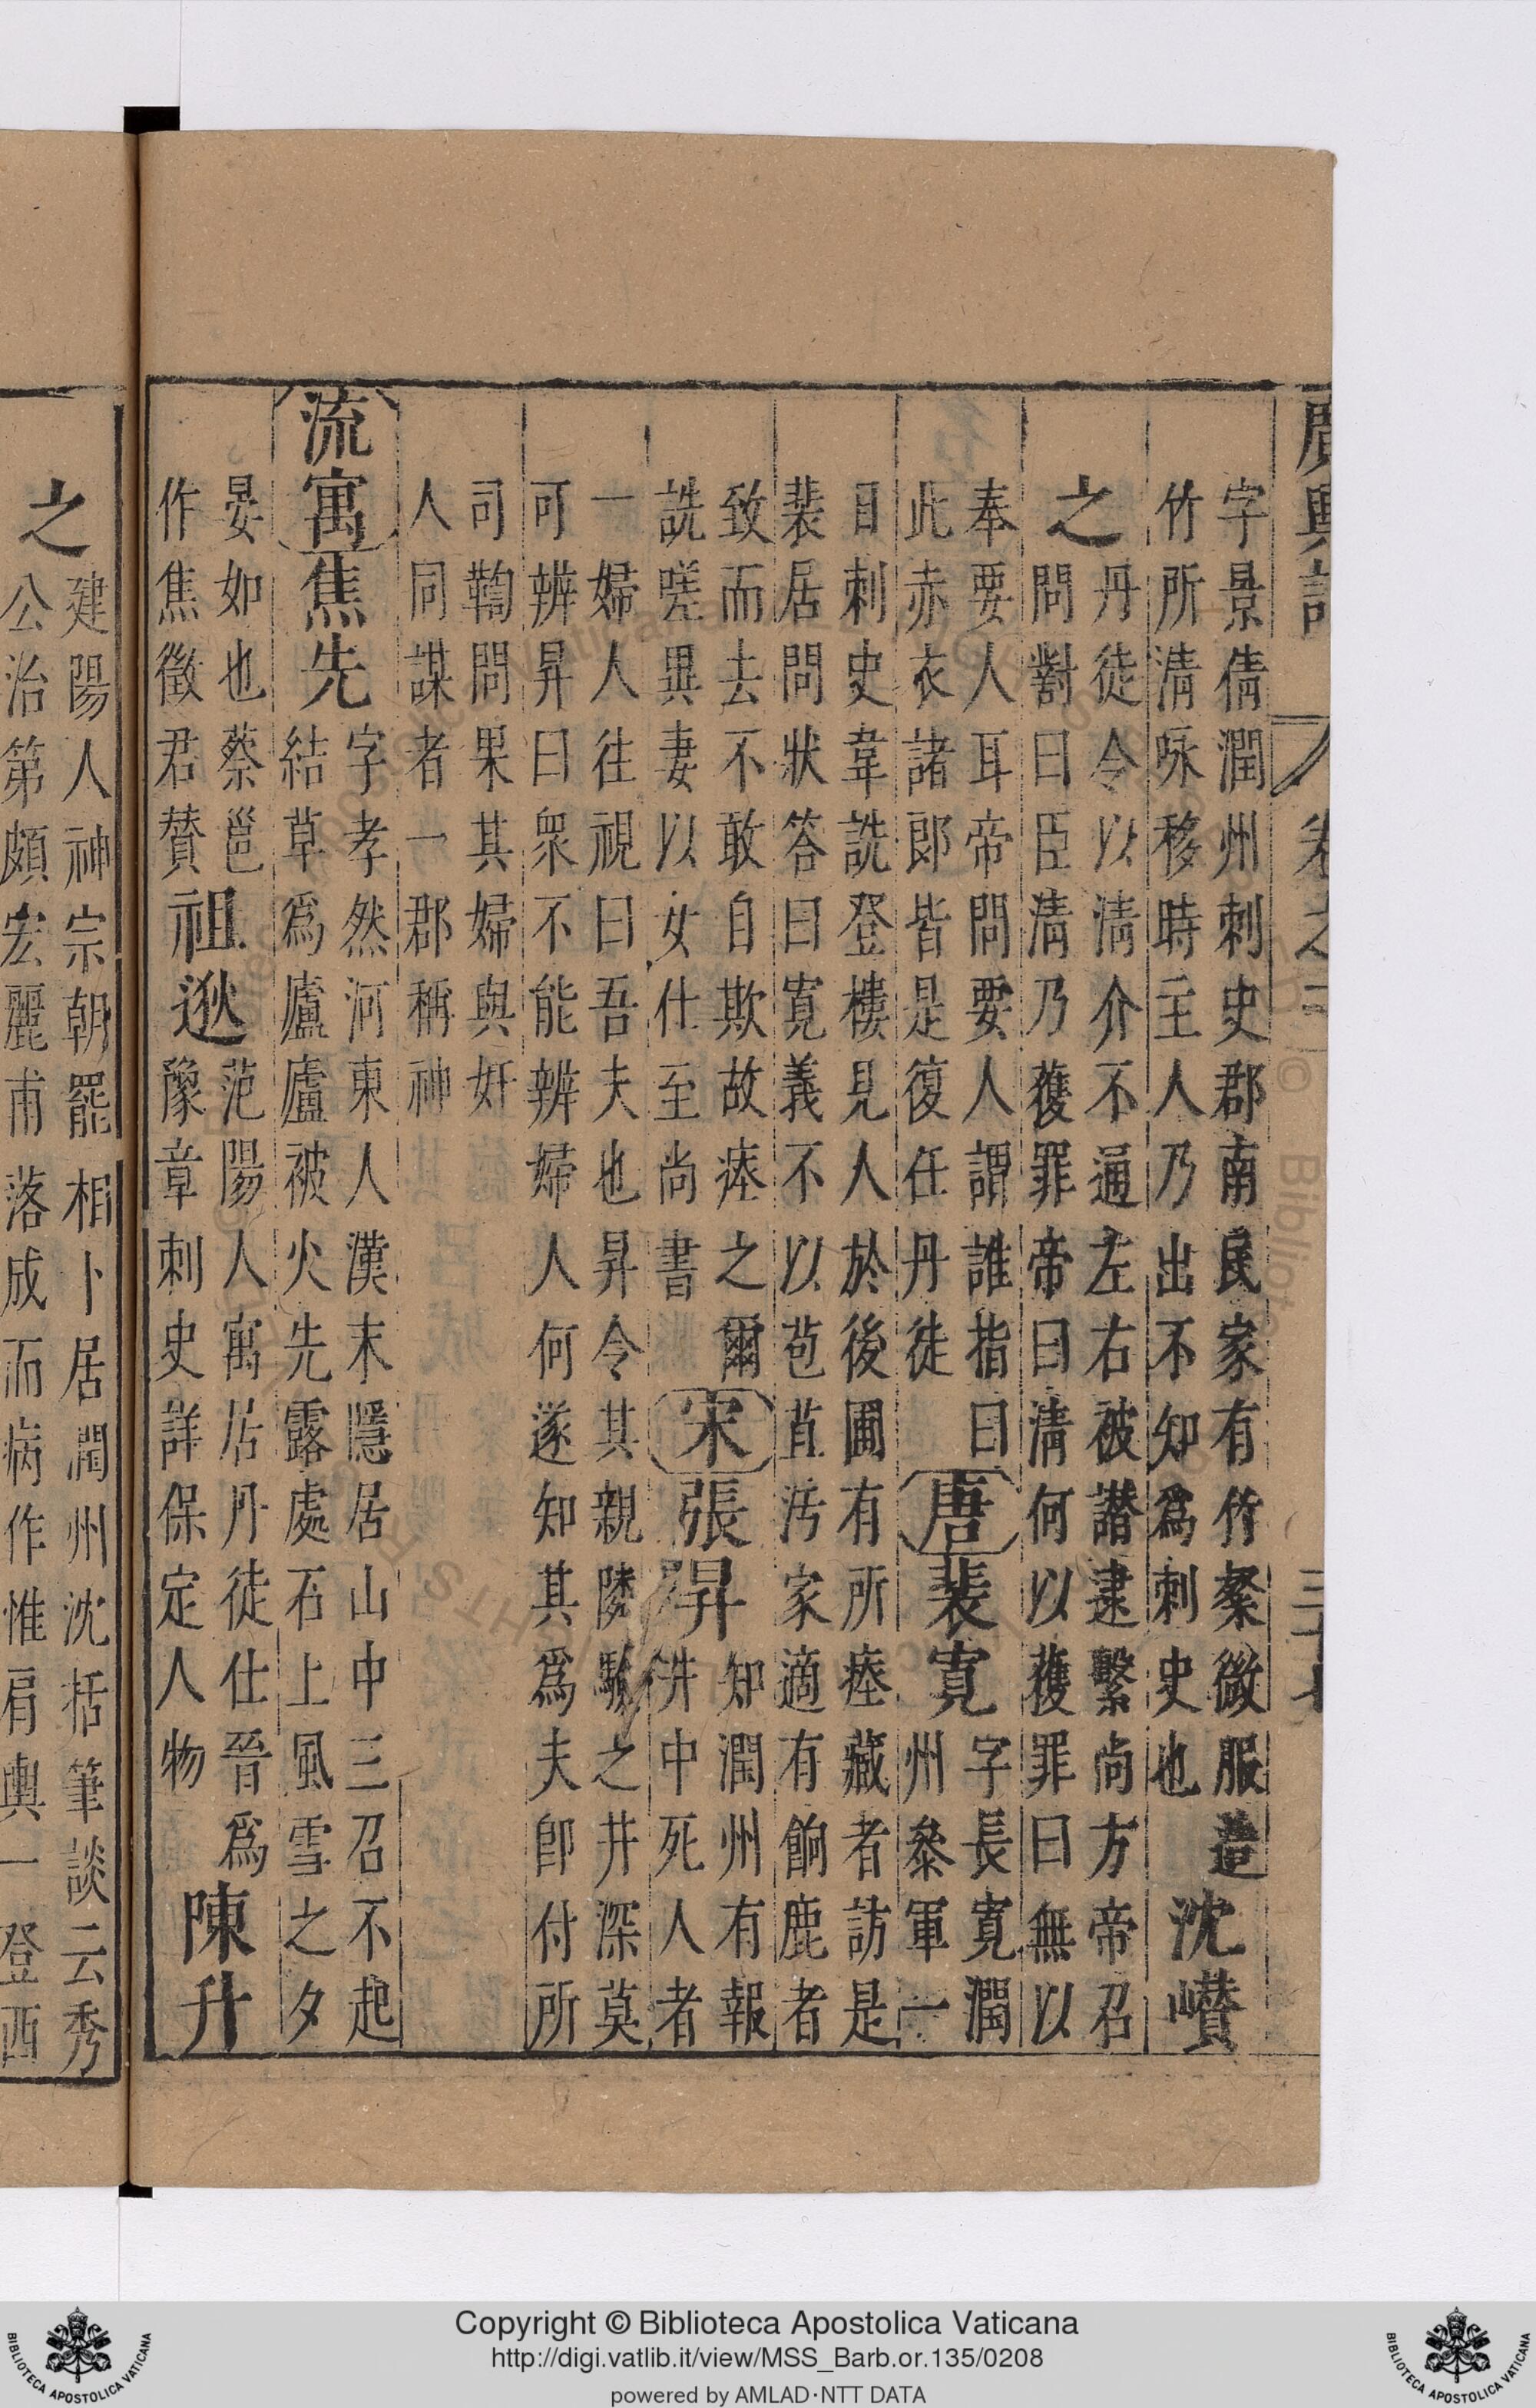 廣輿記
卷之三
三十七
字景倩潤州刺史郡南民家有竹粲微服造
竹所淸咏移時主人乃出不知爲刺史也
沈巑
之
丹徒令以淸介不通左右被譖逮繫尚方帝召
問對曰臣淸乃獲罪帝曰淸何以獲罪曰無以
奉要人耳帝問要人謂誰指曰
此赤衣諸郞皆是復任丹徒
唐
裴寬
字長寬潤
州叅軍一
日刺史韋詵登樓見人於後圃有所瘞藏者訪是
裴居問狀答曰寬義不以苞苴汚家適有餉鹿者
致而去不敢自欺故瘞之爾
詵嗟異妻以女仕至尚書
宋
張昇
知潤州有報
井中死人者
一婦人往視曰吾夫也昇令其親隣驗之井深莫
可辨昇曰衆不能辨婦人何遂知其爲夫卽付所
司鞫問果其婦與奸
人同謀者一郡稱神
流寓
焦先
字孝然河東人漢末隱居山中三召不起
結草爲廬廬被火先露處石上風雪之夕
晏如也蔡邕
作焦徵君贊
祖逖
范陽人寓居丹徒仕晉爲
豫章刺史詳保定人物
陳升
之
建陽人神宗朝罷相卜居潤州沈括筆談云秀
公治第頗宏麗甫落成而病作惟肩輿一登西
Copyright © Biblioteca Apostolica Vaticana
http://digi.vatlib.it/view/MSS_Barb.or.135/0208
powered by AMLAD·NTT DATA
BIBLIOTECA APOSTOLICA VATICANA
BIBLIOTECA APOSTOLICA VATICANA